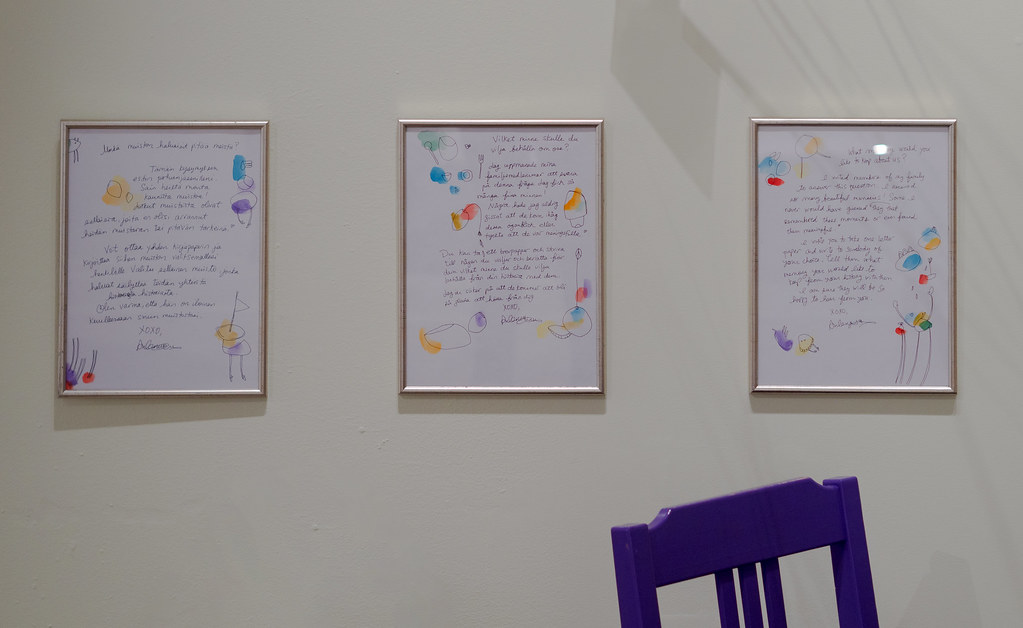 muistos haluaisit pitää meistä?
Tämän kysymyksen
esitin perheenjäsenilleni.
Sain heiltä monta
kaunista muistoa.
Jotkut muistoista olivat
sellaisia, joita en olisi arvannut
heidän muistavan tai pitävän tärkeinä.
Voit ottaa yhden kirjepaperin ja
kirjoittaa siihen muistos valitsemallesi
henkilölle. Valitse sellainen muisto, jonka
haluaisit säilyttää teidän yhteistä
historiasta.
Olen varma, että hän on iloinen
kuullessaan sinun muistostasi.
XOXO,
Vilket minne skulle du
vilja behålla om oss?
Jag uppmanade mina
familjemedlemmar att svara
på denna fråga. Jag fick så
många fina minnen!
Några hade jag aldrig
gissat att de kom ihåg
dessa ögonblick, eller
tyckte att de var meningsfulla.
Du kan ta ett brevpapper och skriva
till någon du väljer och berätta för
dem vilket minne du skulle vilja
från din historia med dem.
Jag är säker på att de kommer att bli
så glada att höra från dig.
XOXO,
What would you
like to keep about us?
I asked members of my family
to answer this question. I received
so many beautiful memories! Some I
never would have guessed they had
remembered these moments or even found
them meaningful.
I invite you to take one letter
paper and write to somebody of
your choice. Tell them what
memory you would like to
keep from your history with them.
I am sure they will be so
happy to hear from you.
XOXO,